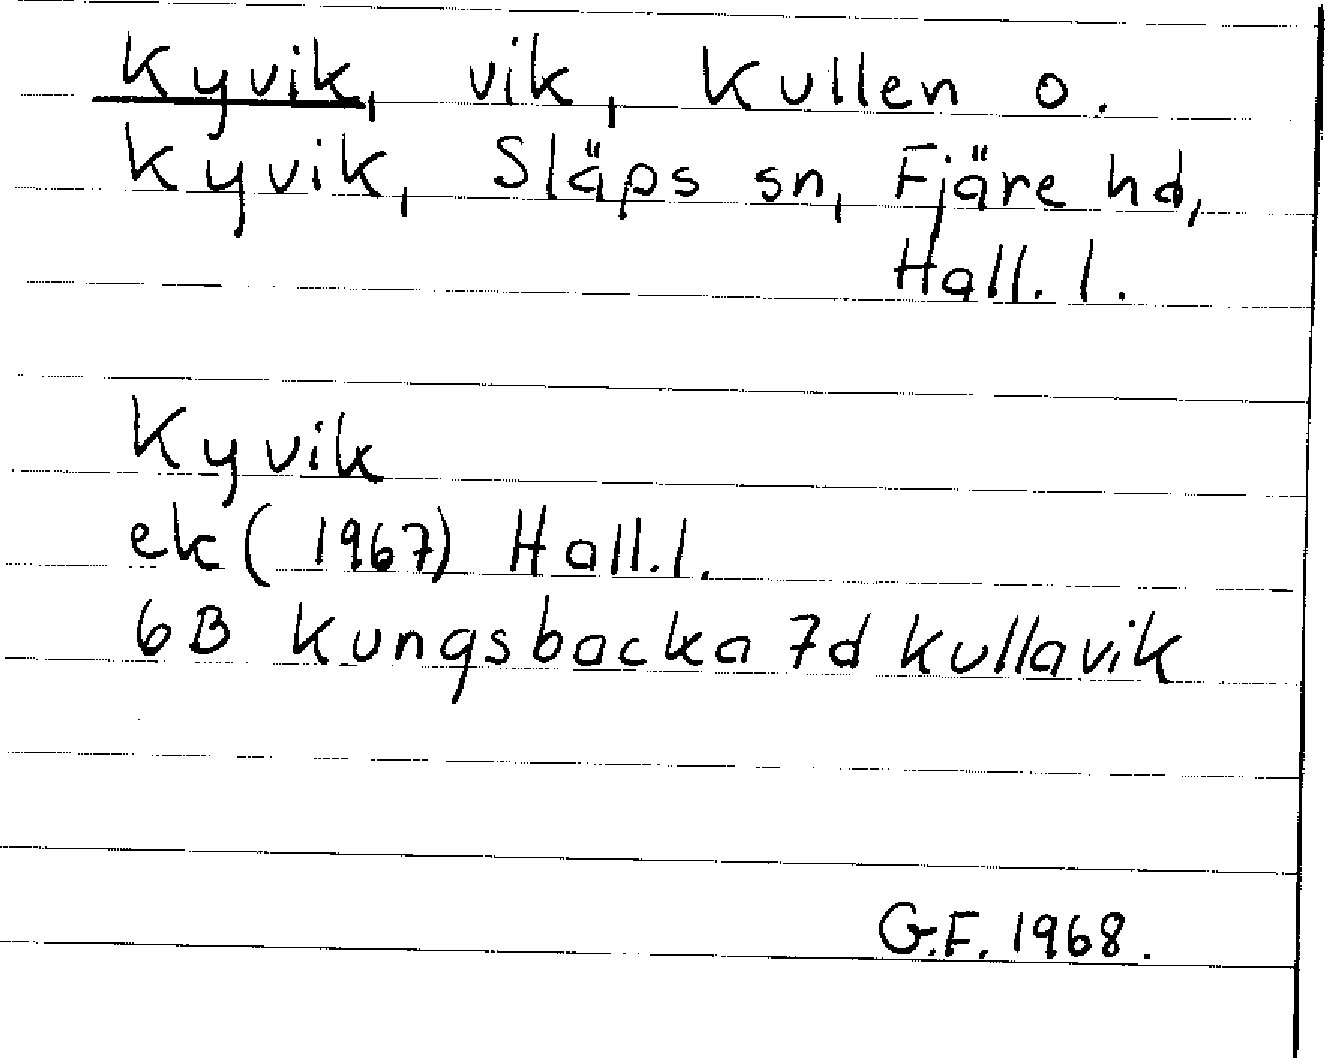 Kyvik, vik, Kullen o.
Kyvik, Släps sn, Fjäre hd,
Hall. l.
Kyvik
ek (1967) Hall.l.
6B Kungsbacka 7d Kullavik
G.F. 1968.